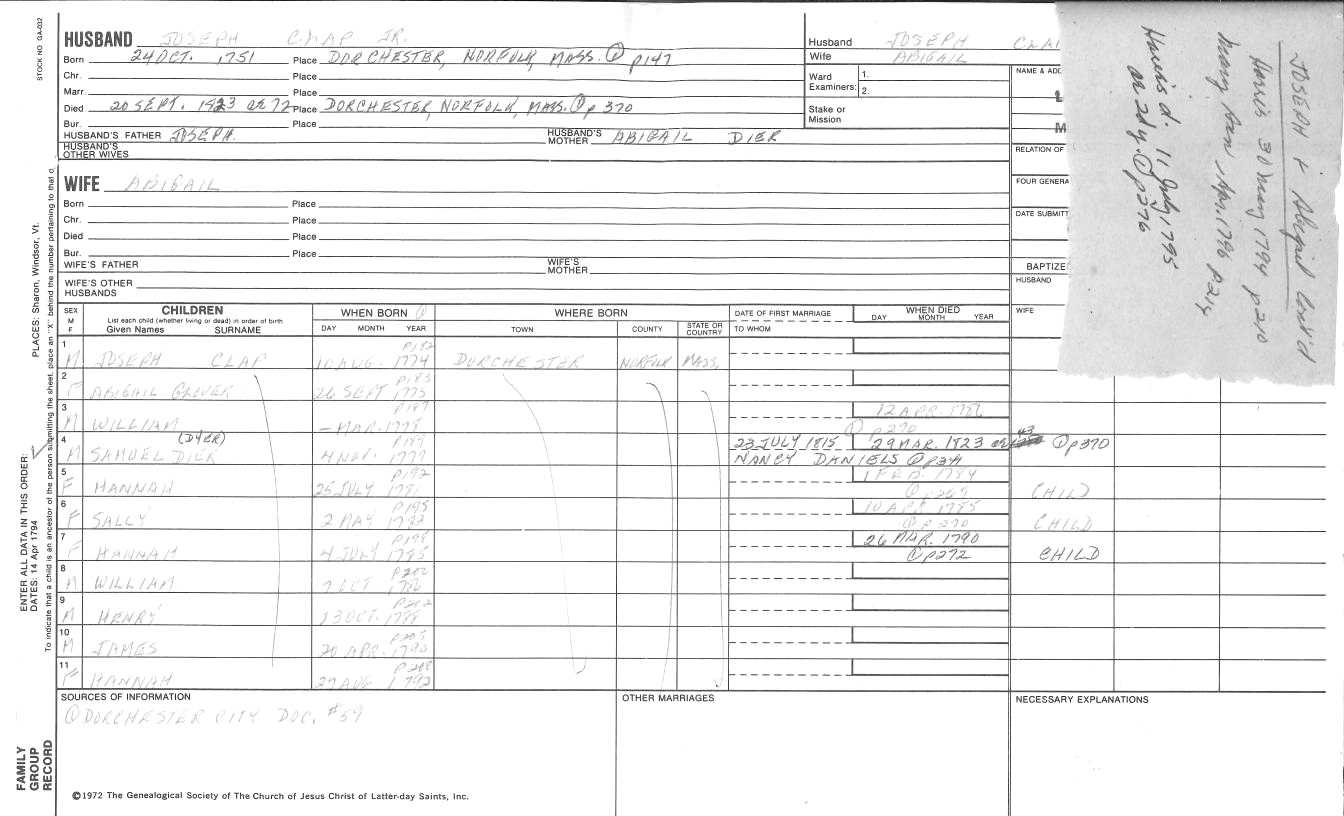 STOCK NO. GA-032
HUSBAND JOSEPH CLAP JR.
Born 24 OCT. 1751 Place DORCHESTER, NORFOLK, MASS. ① p147
Chr. Place
Marr. Place
Died 20 SEPT. 1823 ae 72 Place DORCHESTER, NORFOLK, MASS. ① p 370
Bur. Place
HUSBAND'S FATHER JOSEPH. HUSBAND'S MOTHER ABIGAIL DIER
HUSBAND'S OTHER WIVES
Husband JOSEPH CLA
Wife ABIGAIL
Ward Examiners: 1.
2.
Stake or Mission
NAME & ADD
RELATION OF
FOUR GENERA
DATE SUBMITT
BAPTIZE
HUSBAND
WIFE
JOSEPH & Abigail Cont'd
Harris 30 May 1794 p210
Mary Ann 1 Apr. 1796 p214
Harris d. 11 July 1795
ae 2dy. ① p276
WIFE ABIGAIL
Born Place
Chr. Place
Died Place
Bur. Place
WIFE'S FATHER WIFE'S MOTHER
WIFE'S OTHER HUSBANDS
SEX M F CHILDREN WHEN BORN ① WHERE BORN DATE OF FIRST MARRIAGE WHEN DIED
List each child (whether living or dead) in order of birth
Given Names SURNAME DAY MONTH YEAR TOWN COUNTY STATE OR COUNTRY TO WHOM DAY MONTH YEAR
1 p182
M JOSEPH CLAP 10 AUG. 1774 DORCHESTER NORFOLK MASS.
2 p185
F ABIGAIL GLOVER 26 SEPT 1775
3 p187 12 APR. 1786
M WILLIAM – MAR. 1778 ① p270
4 (DYER) p189 23 JULY 1815 29 MAR. 1823 ae 43 ① p370
M SAMUEL DIER 4 NOV. 1779 NANCY DANIELS ① p311
5 p192 1 FEB. 1784
F HANNAH 25 JULY 178 ① p269 CHILD
6 p195 10 APR 1785
F SALLY 2 MAY 1783 ① p 270 CHILD
7 p198 26 MAR. 1790
F HANNAH 4 JULY 1785 ① p272 CHILD
8 p200
M WILLIAM 7 OCT 1786
9 p202
M HENRY 13 OCT. 1788
10 p205
M JAMES 20 APR. 1790
11 p208
F HANNAH 27 AUG 1792
SOURCES OF INFORMATION OTHER MARRIAGES NECESSARY EXPLANATIONS
① DORCHESTER CITY DOC. #59
©1972 The Genealogical Society of The Church of Jesus Christ of Latter-day Saints, Inc.
FAMILY GROUP RECORD
ENTER ALL DATA IN THIS ORDER:
DATES: 14 Apr 1794
PLACES: Sharon, Windsor, Vt.
To indicate that a child is an ancestor of the person submitting the sheet, place an "X" behind the number pertaining to that c